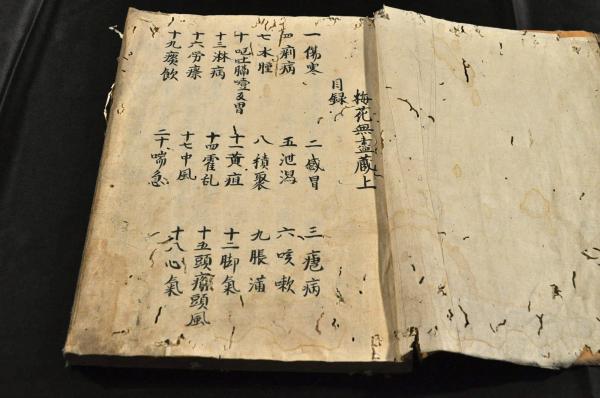 梅花無盡藏上
目録
一傷寒 二感冒 三瘧病
四痢病 五泄瀉 六咳嗽
七水腫 八積聚 九脹滿
十嘔吐膈噎反胃 十一黄疸 十二脚氣
十三淋病 十四霍乱 十五頭痛頭風
十六労瘵 十七中風 十八心氣
十九痰飲 二十喘急